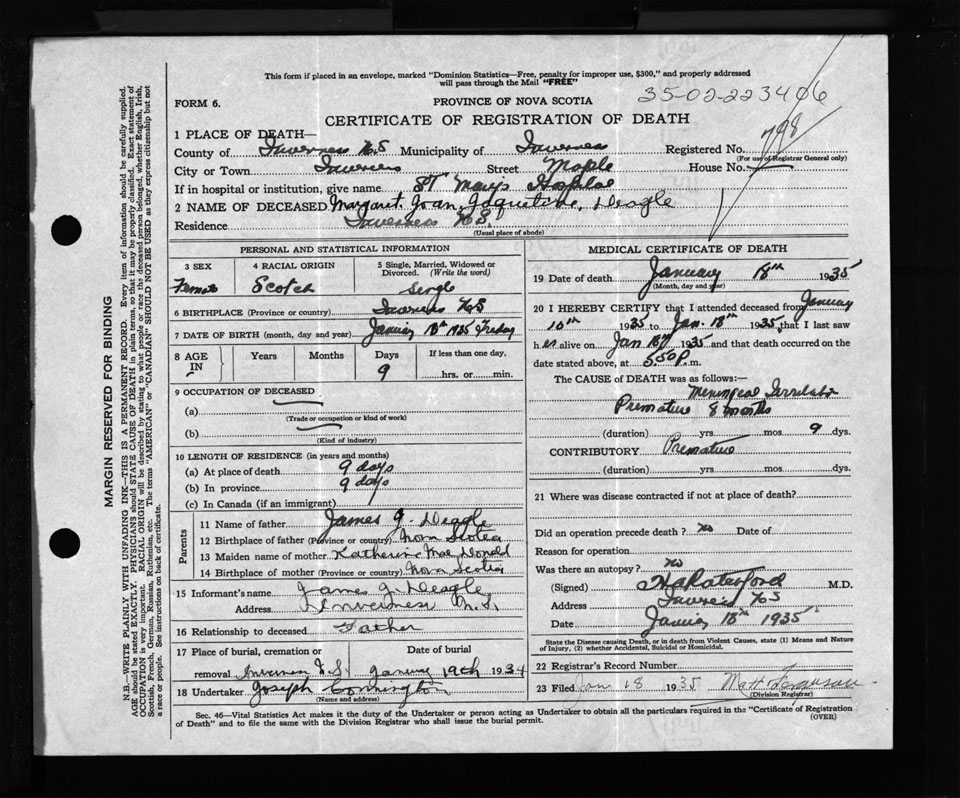 This form if placed in an envelope, marked "Dominion Statistics—Free, penalty for improper use, $300," and properly addressed
will pass through the Mail "FREE"
35-02-223406
FORM 6.
PROVINCE OF NOVA SCOTIA
CERTIFICATE OF REGISTRATION OF DEATH
798
1 PLACE OF DEATH—
County of Inverness N.S Municipality of Inverness Registered No.
(For use of Registrar General only)
City or Town Inverness Street Maple House No.
If in hospital or institution, give name St Marys
2 NAME OF DECEASED Margaret Joan Deagle
Residence Inverness N.S.
(Usual place of abode)
PERSONAL AND STATISTICAL INFORMATION
3 SEX
Female
4 RACIAL ORIGIN
Scotch
5 Single, Married, Widowed or
Divorced. (Write the word)
Single
6 BIRTHPLACE (Province or country) Inverness N.S
7 DATE OF BIRTH (month, day and year) 1935 Friday
8 AGE IN Years Months Days If less than one day,
9 hrs. or min.
9 OCCUPATION OF DECEASED
(a)
(Trade or occupation or kind of work)
(b)
(Kind of industry)
10 LENGTH OF RESIDENCE (in years and months)
(a) At place of death 9 days
(b) In province 9 days
(c) In Canada (if an immigrant)
Parents
11 Name of father James J. Deagle
12 Birthplace of father (Province or country) Nova Scotia
13 Maiden name of mother Katherine Mac Donald
14 Birthplace of mother (Province or country) Nova Scotia
15 Informant's name James J. Deagle
Address Inverness N.S.
16 Relationship to deceased Father
17 Place of burial, cremation or Date of burial
removal Inverness N.S. January 19th 1934
18 Undertaker Joseph
(Name and address)
MEDICAL CERTIFICATE OF DEATH
19 Date of death January 18th 1935
(Month, day and year)
20 I HEREBY CERTIFY that I attended deceased from January
10th 1935 to Jan. 18th 1935, that I last saw
her alive on Jan 18th 1935 and that death occurred on the
date stated above, at 5.50 P. m.
The CAUSE of DEATH was as follows:—
Meningeal
Premature 8 months
(duration) yrs. mos. 9 dys.
CONTRIBUTORY Premature
(duration) yrs. mos. dys.
21 Where was disease contracted if not at place of death?
Did an operation precede death? No Date of
Reason for operation
Was there an autopsy? No
(Signed) M.D.
Address Inverness N.S
Date January 18th 1935
State the Disease causing Death, or in death from Violent Causes, state (1) Means and Nature
of Injury, (2) whether Accidental, Suicidal or Homicidal.
22 Registrar's Record Number
23 Filed Jan 18 1935 Matt Ferguson
(Division Registrar)
Sec. 46—Vital Statistics Act makes it the duty of the Undertaker or person acting as Undertaker to obtain all the particulars required in the "Certificate of Registration
of Death" and to file the same with the Division Registrar who shall issue the burial permit. (OVER)
MARGIN RESERVED FOR BINDING
N.B.—WRITE PLAINLY WITH UNFADING INK—THIS IS A PERMANENT RECORD. Every item of information should be carefully supplied.
AGE should be stated EXACTLY. PHYSICIANS should STATE CAUSE OF DEATH in plain terms, so that it may be properly classified. Exact statement of
OCCUPATION is very important. RACIAL ORIGIN will be described by stating to what people or race the deceased person belonged, whether English, Irish,
Scottish, French, German, Russian, Ruthenian, etc. The terms "AMERICAN" or "CANADIAN" SHOULD NOT BE USED as they express citizenship but not
a race or people. See instructions on back of certificate.